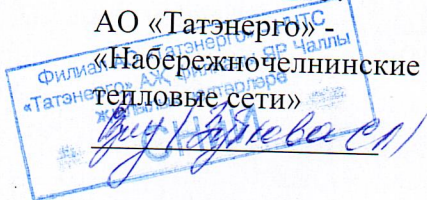 АО «Татэнерго» -
«Набережночелнинские
тепловые сети»
Филиал АО «Татэнерго» НЧТС
«Татэнерго» АҖ филиалы ЯР Чаллы
җылылык челтәрләре